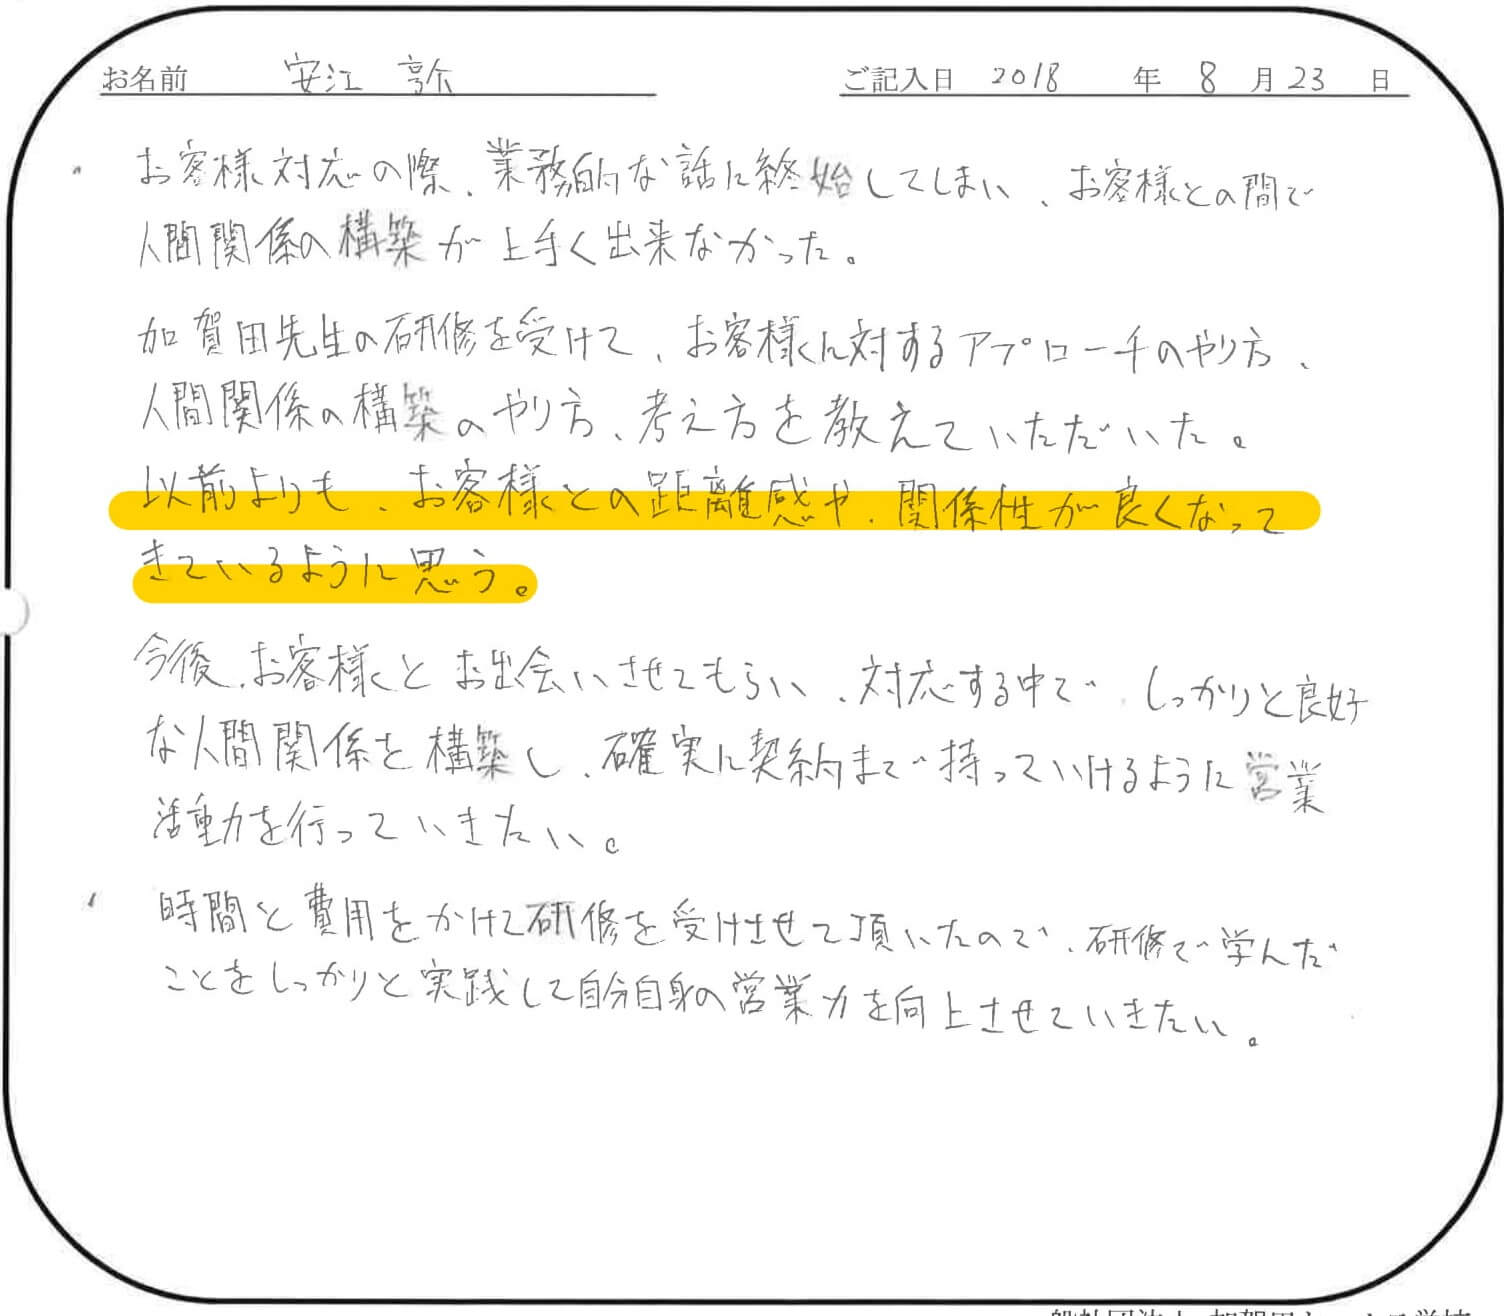 お名前 安江 亮介 ご記入日 2018 年 8 月 23 日
・お客様対応の際、業務的な話に終始してしまい、お客様との間で
人間関係の構築が上手く出来なかった。
加賀田先生の研修を受けて、お客様に対するアプローチのやり方、
人間関係の構築のやり方、考え方を教えていただいた。
以前よりも、お客様との距離感や、関係性が良くなって
きているように思う。
今後、お客様とお出会いさせてもらい、対応する中で、しっかりと良好
な人間関係を構築し、確実に契約まで持っていけるように営業
活動力を行っていきたい。
・時間と費用をかけて研修を受けさせて頂いたので、研修で学んだ
ことをしっかりと実践して自分自身の営業力を向上させていきたい。